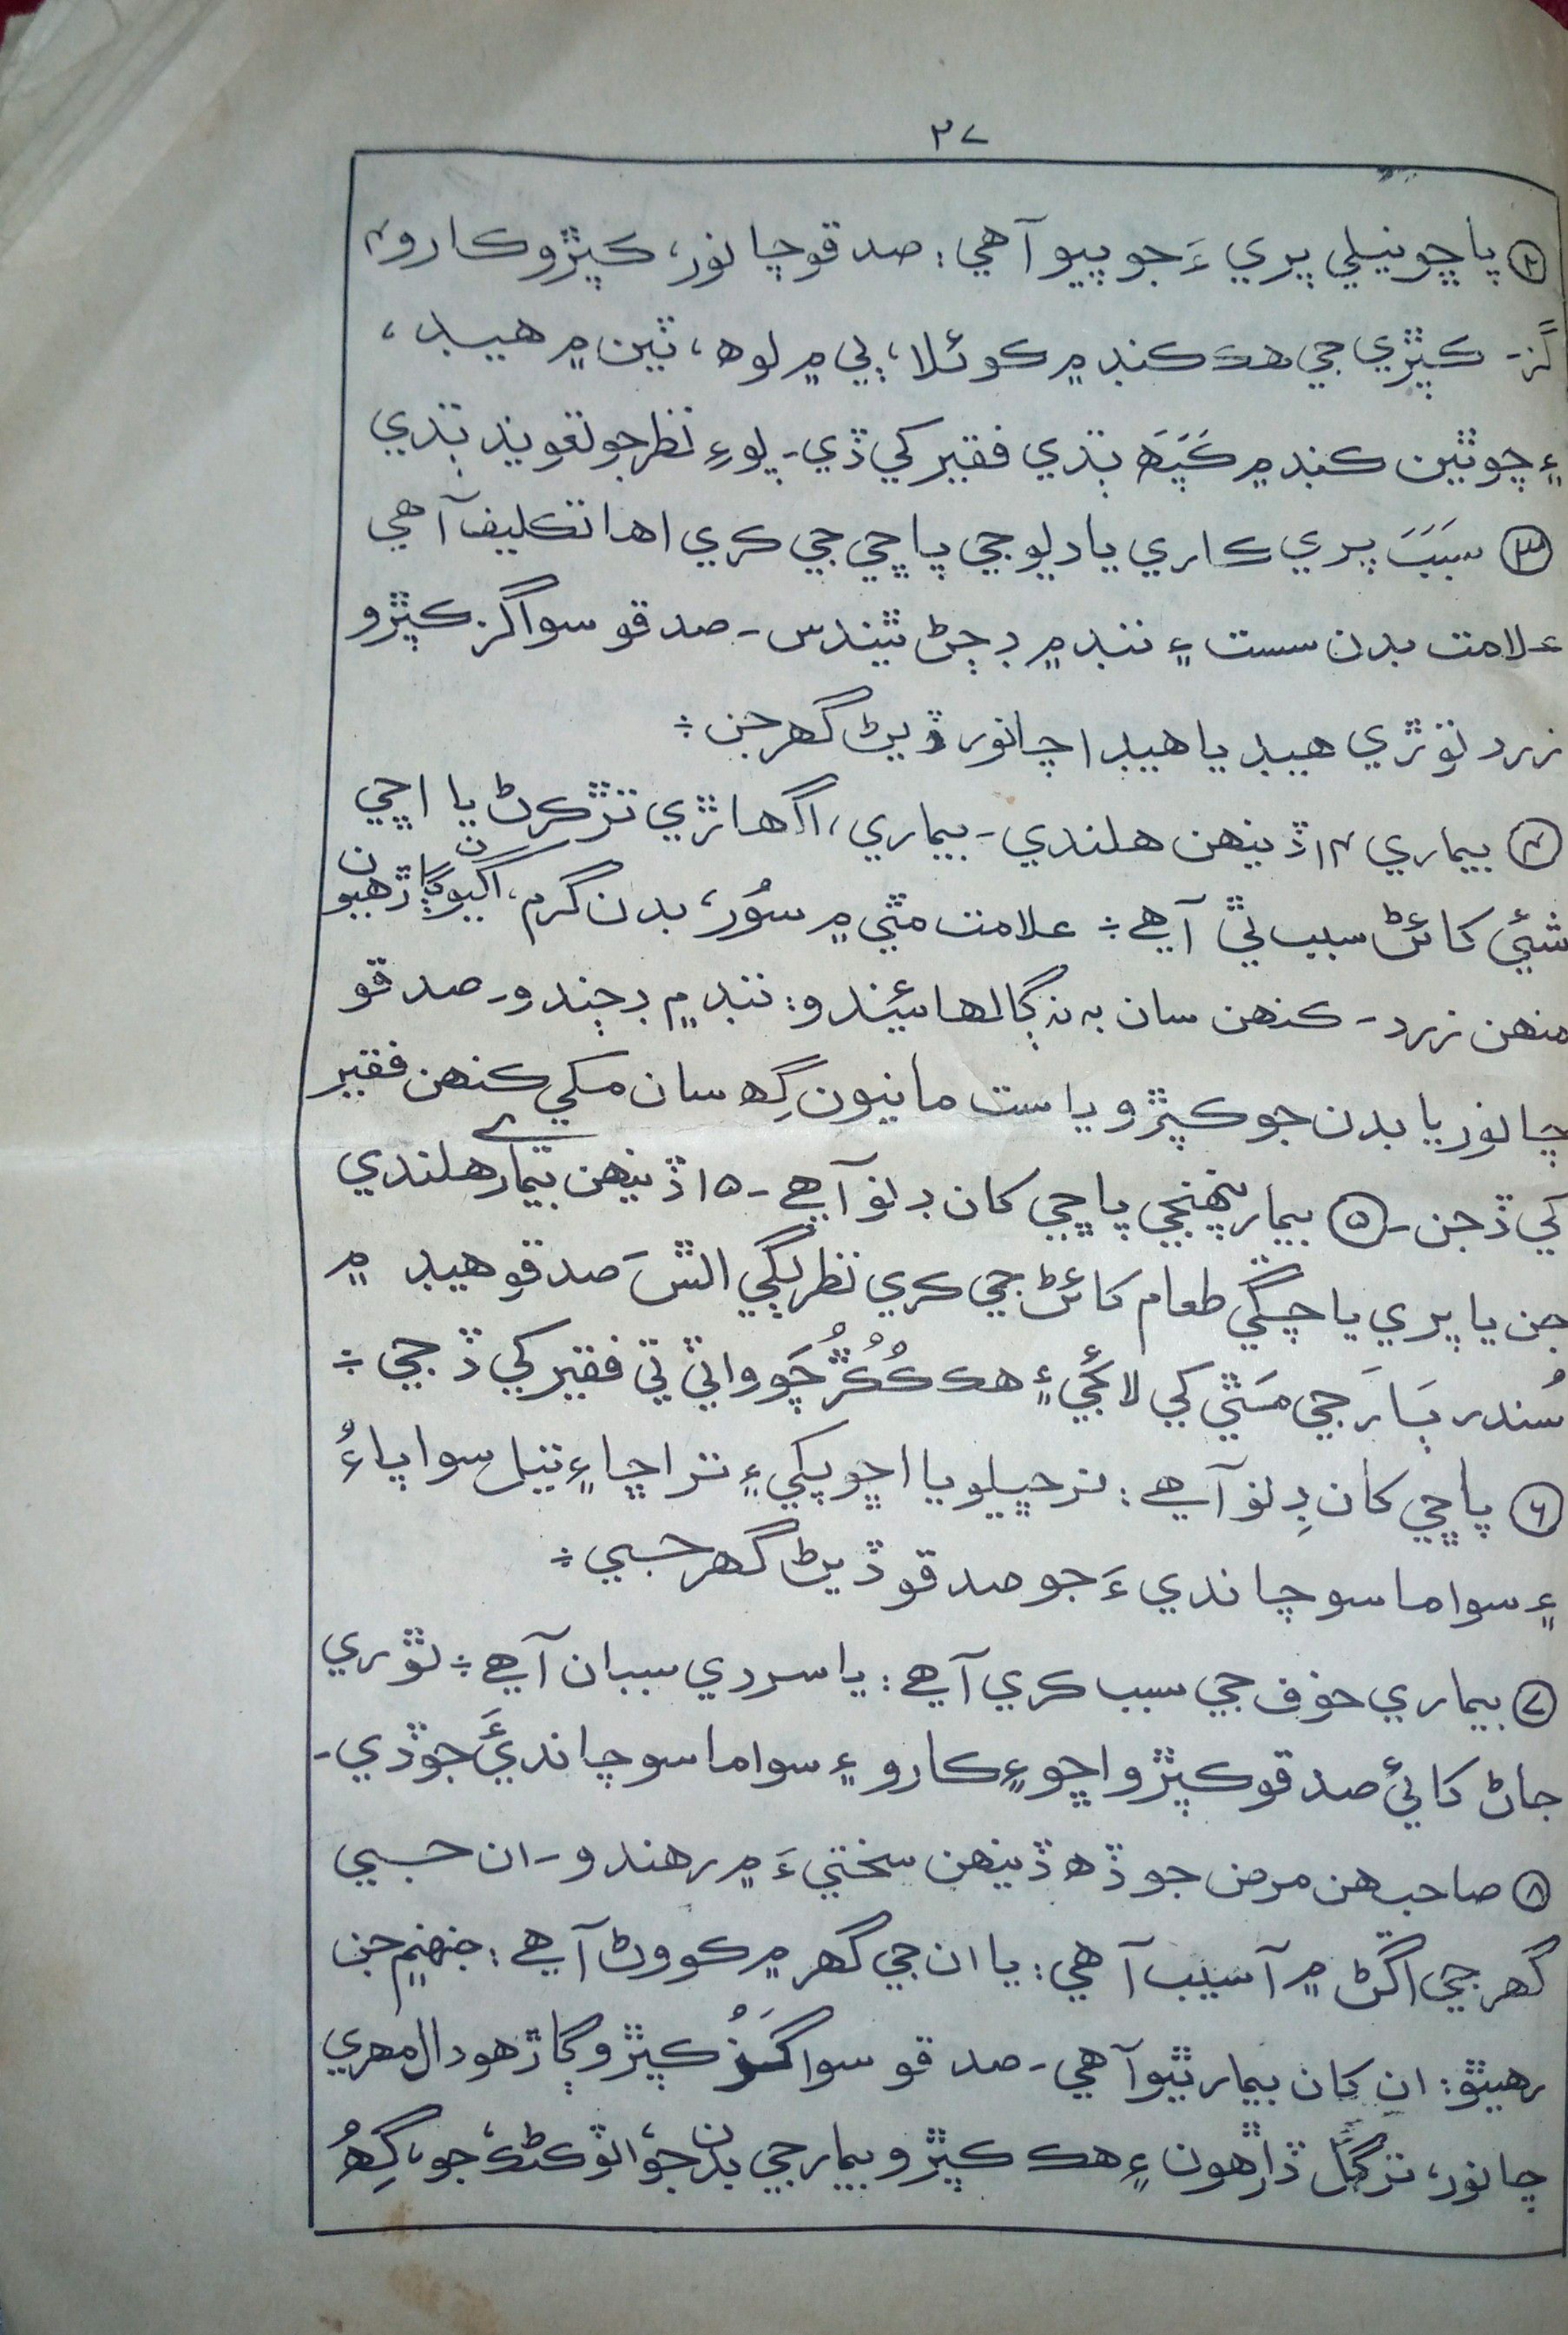 ۳۷
② پاڇو نيلي پري ءَ جو پيو آهي: صدقو چانور، ڪپڙو ڪارو ۲
گز۔ ڪپڙي جي هڪ ڪنڊ ۾ ڪوئلا، ٻي ۾ لوھ، ٽين ۾ هيڊ،
۽ چوٿين ڪنڊ ۾ ڪَپَهَ ٻڌي فقير کي ڏي۔ پوءِ نظر جو تعويذ ٻڌي
③ سَبَبَ پري ڪاري يا ديو جي پاڇي جي ڪري اها تڪليف آهي
علامت بدن سست ۽ ننڊ ۾ ڊڄڻ ٿيندس۔ صدقو سوا گز ڪپڙو
زرد ٿوڙي هيڊ يا هيڊا چانور ڏيڻ گهرجن ÷
④ بيماري ۱۴ ڏينهن هلندي۔ بيماري، اگهاڙي تڙ ڪرڻ يا اڇي
شئي کائڻ سبب ٿي آهي ÷ علامت مٿي ۾ سُور، بدن گرم، اکيون ڳاڙهيون
منهن زرد۔ ڪنهن سان به نه ڳالهائيندو: ننڊ ۾ ڊڄندو۔ صدقو
چانور يا بدن جو ڪپڙو يا ست مانيون گِھ سان مکي ڪنهن فقير
کي ڏجن۔ ⑤ بيمار پنهنجي پاڇي کان ڊنو آهي۔ ۱۵ ڏينهن بيماري هلندي
جن يا پري يا چڱي طعام کائڻ جي ڪري نظر لڳي اٿسَ صدقو هيڊ ۾
سُندر ٻارَ جي مَٿي کي لائجي ۽ هڪ ڪُڪُڙ چَوواٽي تي فقير کي ڏجي ÷
⑥ پاڇي کان ڊِنو آهي: نر ڇيلو يا اڇو پکي ۽ تر اڇا ۽ تيل سوا پاءُ
۽ سوا ماسو چاندي ءَ جو صدقو ڏيڻ گهرجي ÷
⑦ بيماري خوف جي سبب ڪري آهي: يا سردي سببان آهي ÷ ٿوري
ڄاڻ کائي صدقو ڪپڙو اڇو ۽ ڪارو ۽ سوا ماسو چانديءَ جو ڏي۔
⑧ صاحب هن مرض جو ڏھ ڏينهن سختي ءَ ۾ رهندو۔ ان جي
گهر جي اڱڻ ۾ آسيب آهي: يا ان جي گهر ۾ ڪو وڻ آهي: جنهنم جن
رهي ٿو: ان کان بيمار ٿيو آهي۔ صدقو سوا گَزُ ڪپڙو ڳاڙهو دال مهري
چانور، تر گل ڏاڙهون ۽ هڪ ڪپڙو بيمار جي بدن جو، اٽو ڪڻڪ جو، گِھُ